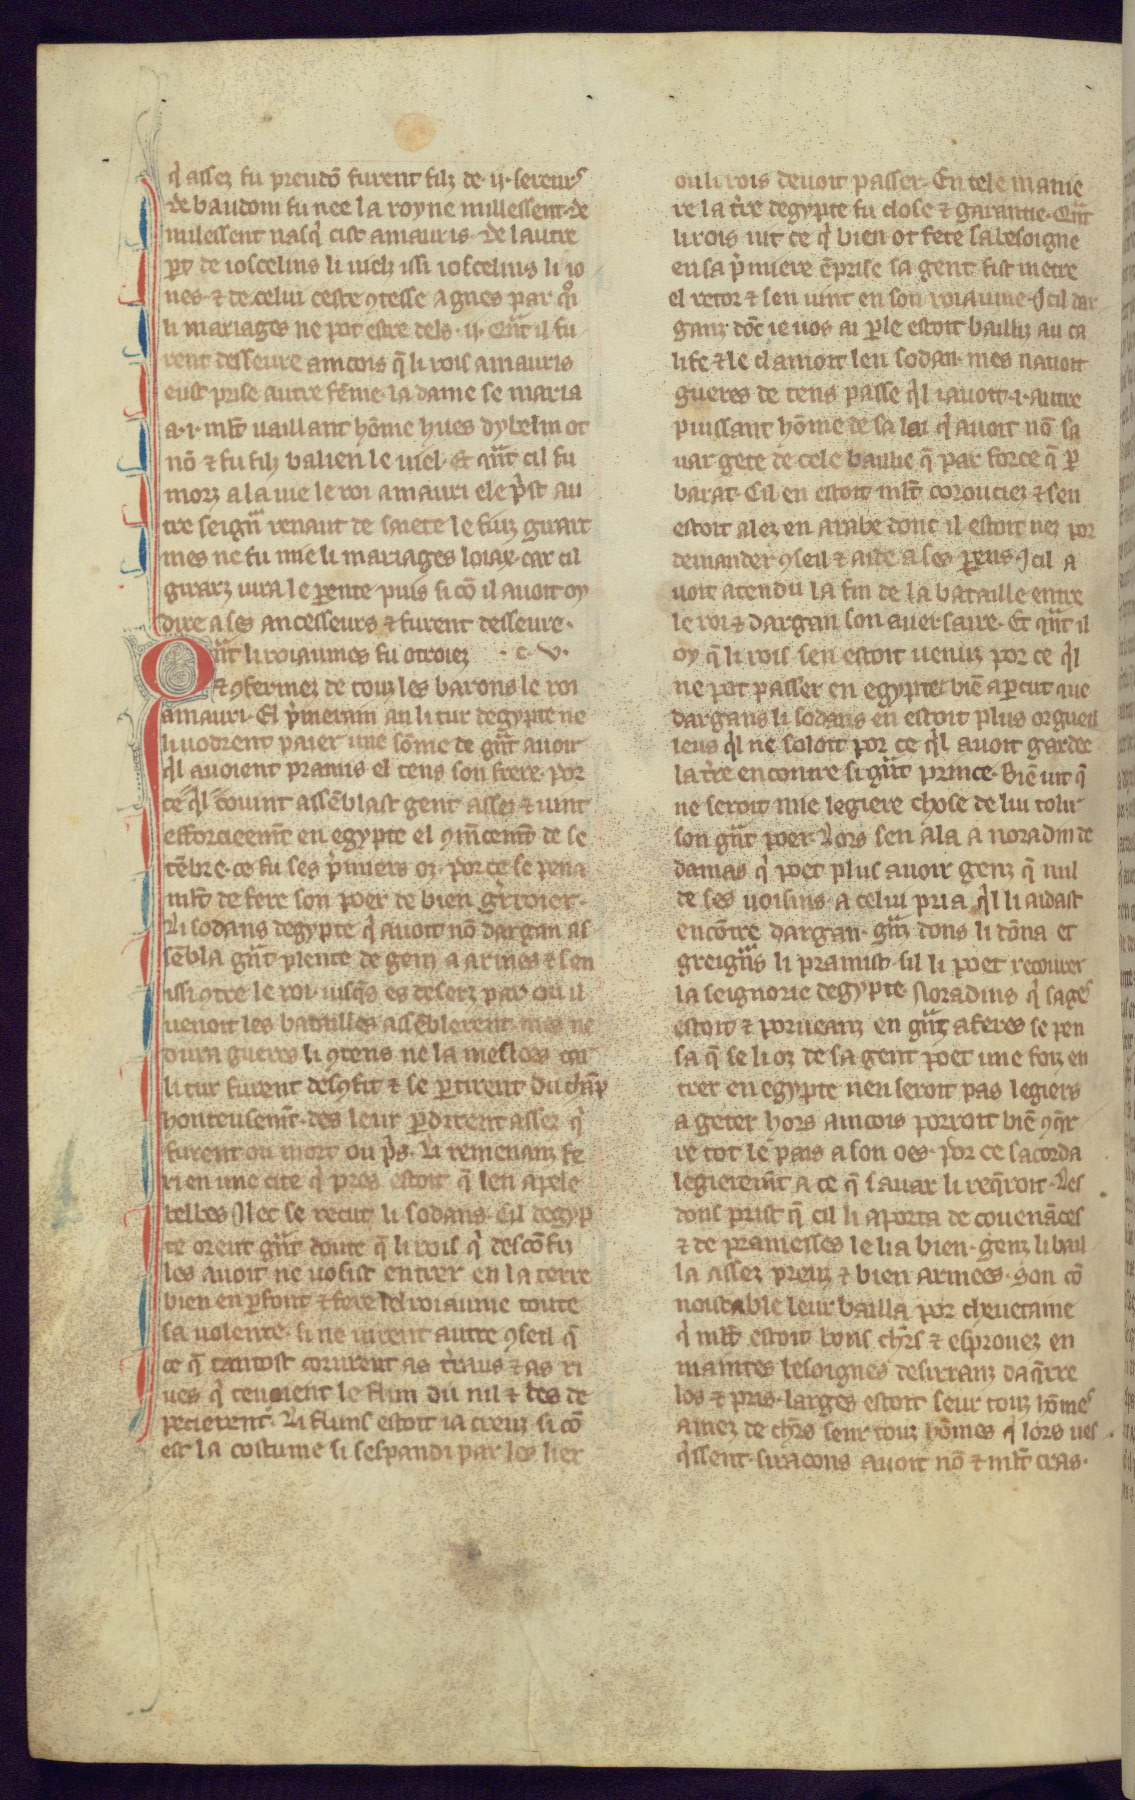 q̉ assez fu preudō furent filz de .ij. sereurs
de baudoin fu nee la royne millessent. de
milessent nasq̉ cist amauris. de lautre
ꝑt de ioscelins li uielz issi ioscelins li io
nes. & de celui ceste ꝯtesse agnes par q̉i
li mariages ne pot estre dels .ij. Qn̄t il fu
rent desseure aincois q̄ li rois amauris
eust prise autre fēme. la dame se maria
a .i. ml̄t uaillant hōme hues dybelin ot
nō & fu filz balien le uiel. Et qn̄t cil fu
morz a la uie le roi amauri ele p̉st au
tre seign̄r renaut de saiete le fuiz girart
mes ne fu mie li mariages loiax. car cil
girarz iura le ꝑente puis si cō il auoit oy
dire a ses ancesseurs & furent desseure.
Qn̄t li roiaumes fu otroiez .c.v.
& ꝯfermez de touz les barons le roi
amauri. El p̉merain an li tur degypte ne
li uodrent paier une sōme de gn̄t auoir
q̉l auoient pramis el tens son frere. por
ce q̉l couint assēblast gent assez & uint
efforcieem̄t en egypte el ꝯm̄cem̄t de se
tēbre. ce fu ses p̉miers oz. por ce se pena
ml̄t de fere son poer de bien gr̄roier.
Li sodans degypte q̉ auoit nō dargan as
sēbla gn̄t plente de genz a armes & sen
issi ꝯtre le roi. iusq̄s es deserz par ou il
uenoit les batailles assēblerent. mes ne
dura gueres li ꝯtens ne la meslees car
li tur furent desꝯfit & se ꝑtirent du chāp
honteusem̄t. des leur ꝑdirent assez q̉
furent ou mort ou p̉s. Li remenanz fe
ri en une cite q̉ pres estoit q̄ len apele
belbes Ilec se recut li sodans. Cil degyp
te orent gn̄t doute q̄ li rois q̉ descōfiz
les auoit ne uosist entrer en la terre
bien en ꝑfont & fere del roiaume toute
sa uolente. si ne uirent autre ꝯseil q̄
ce q̄ tantost corurent as tr̉aus & as ri
ues q̉ tenoient le flun du nil & les de
pecierent. Li fluns estoit ia creuz si cō
est la costume si sespandi par les lier
ou li rois deuoit passer. En tele manie
re la tr̉re degypte fu close & garantie. Qn̄t
li rois uit ce q̉ bien ot fete sa besoigne
en sa p̉miere ēprise sa gent fist metre
el retor & sen uint en son roiaume. Icil dar
ganz dōt ie uos ai ꝑle estoit bailliz au ca
life & le clamoit len sodan. mes nauoit
gueres de tens passe q̉l i auoit .i. autre
puissant hōme de sa loi q̉ auoit nō sa
uar gete de cele baillie q̄ par force q̄ ꝑ
barat. Cil en estoit ml̄t corouciez & sen
estoit alez en arabe dont il estoit nez por
demander ꝯseil & aide a ses ꝑens. Icil a
uoit atendu la fin de la bataille entre
le roi & dargan son auersaire. Et qn̄t il
oy q̄ li rois sen estoit uenuz por ce q̉l
ne pot passer en egypte. biē aꝑcut que
dargans li sodans en estoit plus orgueil
ieus q̉l ne soloit por ce q̉l auoit gardee
la tr̉re encontre si gn̄t prince. Biē uit q̄
ne seroit mie legiere chose de lui tolir
son gn̄t poer. Lors sen ala a noradin de
damas q̉ poet plus auoir genz q̄ nul
de ses uoisins. a celui pria q̉l li aidast
encōtre dargan. gn̄z dons li dōna et
greign̄s li pramist. sil li poet recourer
la seignorie degypte. Noradins q̉ sages
estoit & porueanz en gn̄z aferes se pen
sa q̄ se li oz de sa gent poet une foiz en
trer en egypte nen seroit pas legiers
a geter hors aincois porroit biē ꝯq̄r
re tot le pais a son oes. por ce sacorda
legierem̄t a ce q̄ sauar li req̄roit. Les
dons prist q̄ cil li aporta de couenāces
& de pramesses le lia bien. genz li bail
la assez preuz & bien armees. Son cō
noistable leur bailla por chevetaine
q̉ ml̄t estoit bons chr̄s & esprouez en
maintes besoignes desirranz daq̄rre
los & pris. larges estoit seur touz hōmes
amez de chr̄s seur touz hōmes q̉ lors ues
q̉ssent. siracons auoit nō & ml̄t cras.